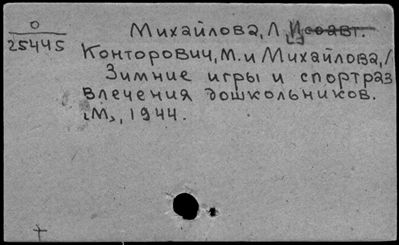 О
25445
Михайлова, Л, [соавт.
Конторович, М. и Михайлова, Л
Зимние игры и спортраз
влечения дошкольников.
М., 1944.